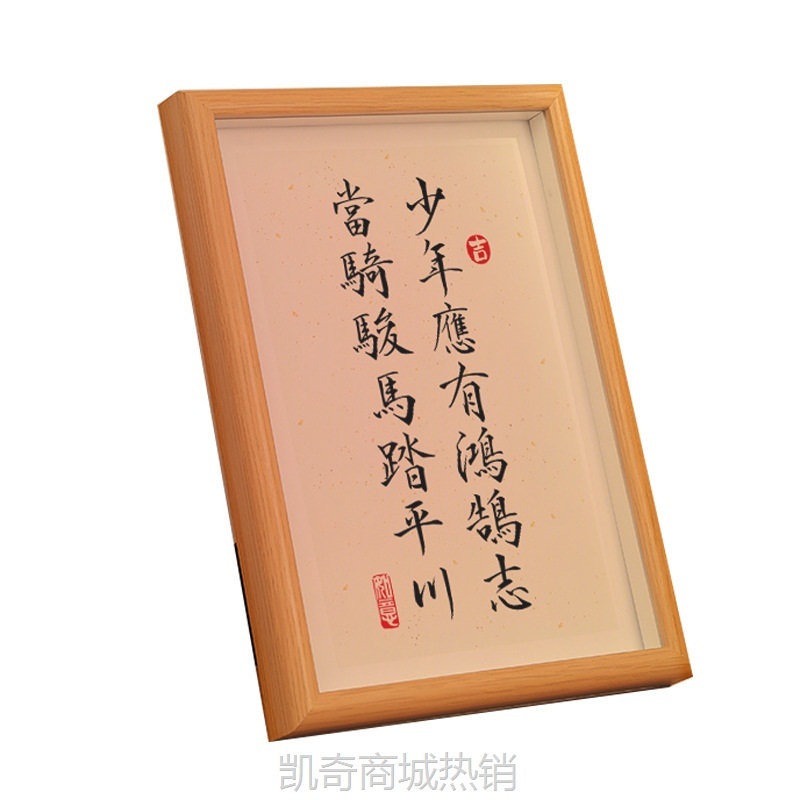 少年應有鴻鵠志
當騎駿馬踏平川
吉
如意
凯奇商城热销